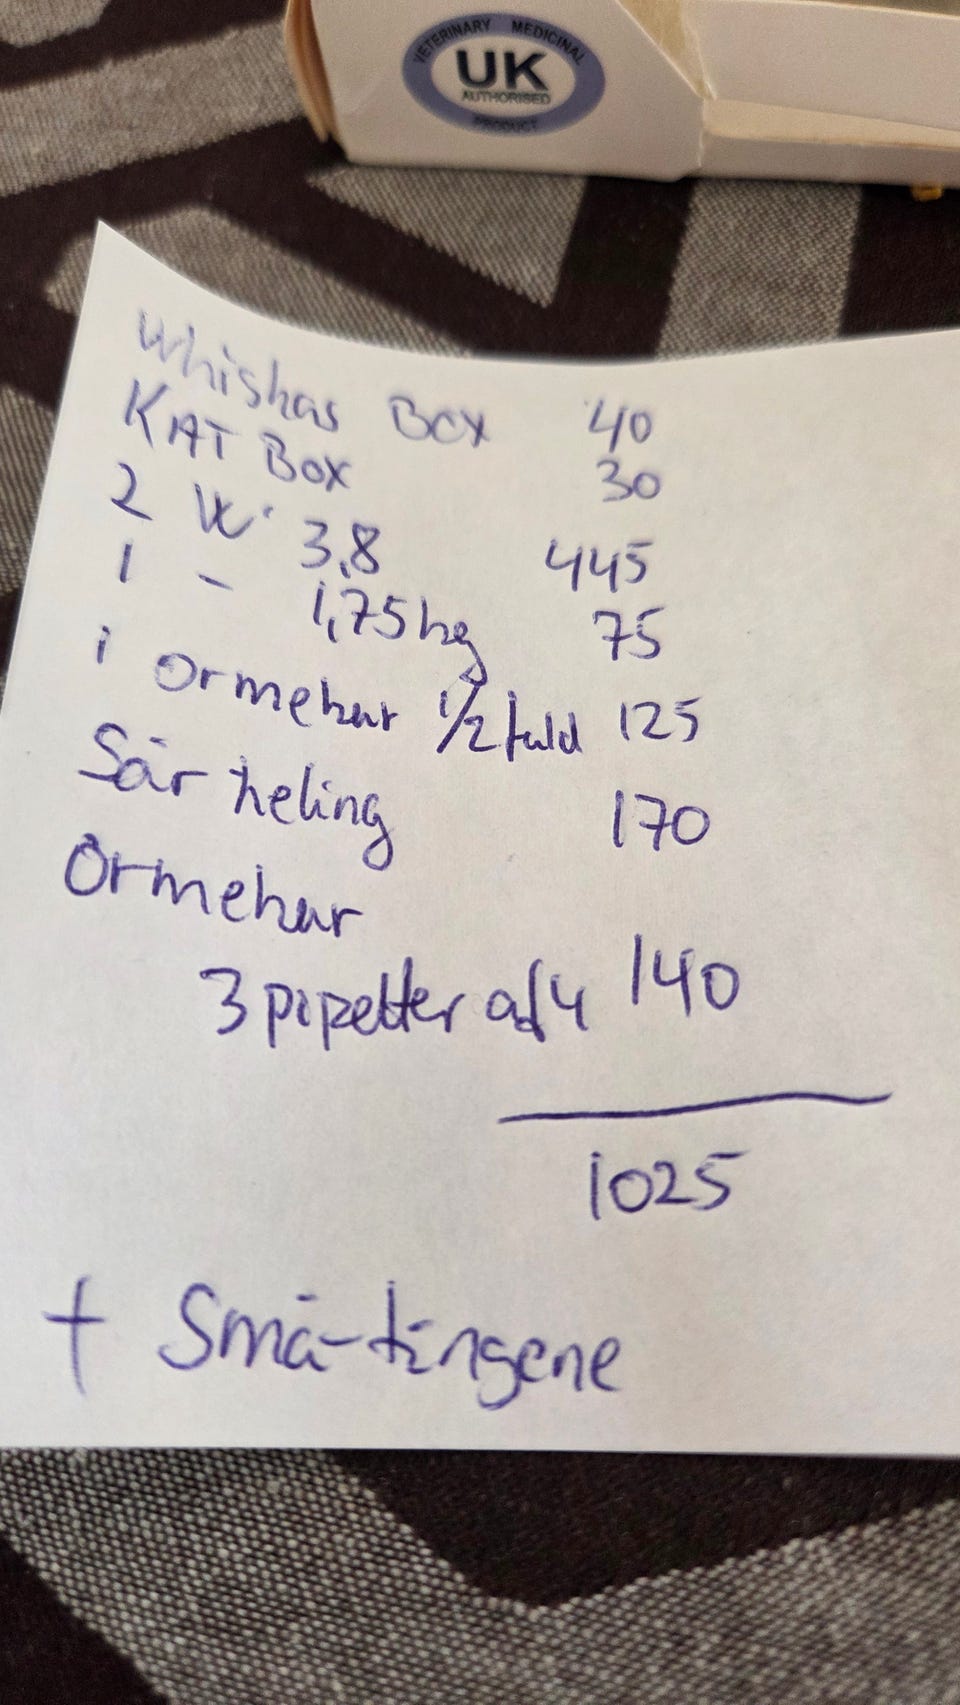 VETERINARY MEDICINAL
UK
AUTHORISED
PRODUCT
Whiskas Box 40
KAT Box 30
2 W. 3,8 445
1 - 1,75 kg 75
1 ormekur 1/2 fuld 125
Sår heling 170
Ormekur
3 pipetter af 4 140
1025
+ Små-tingene